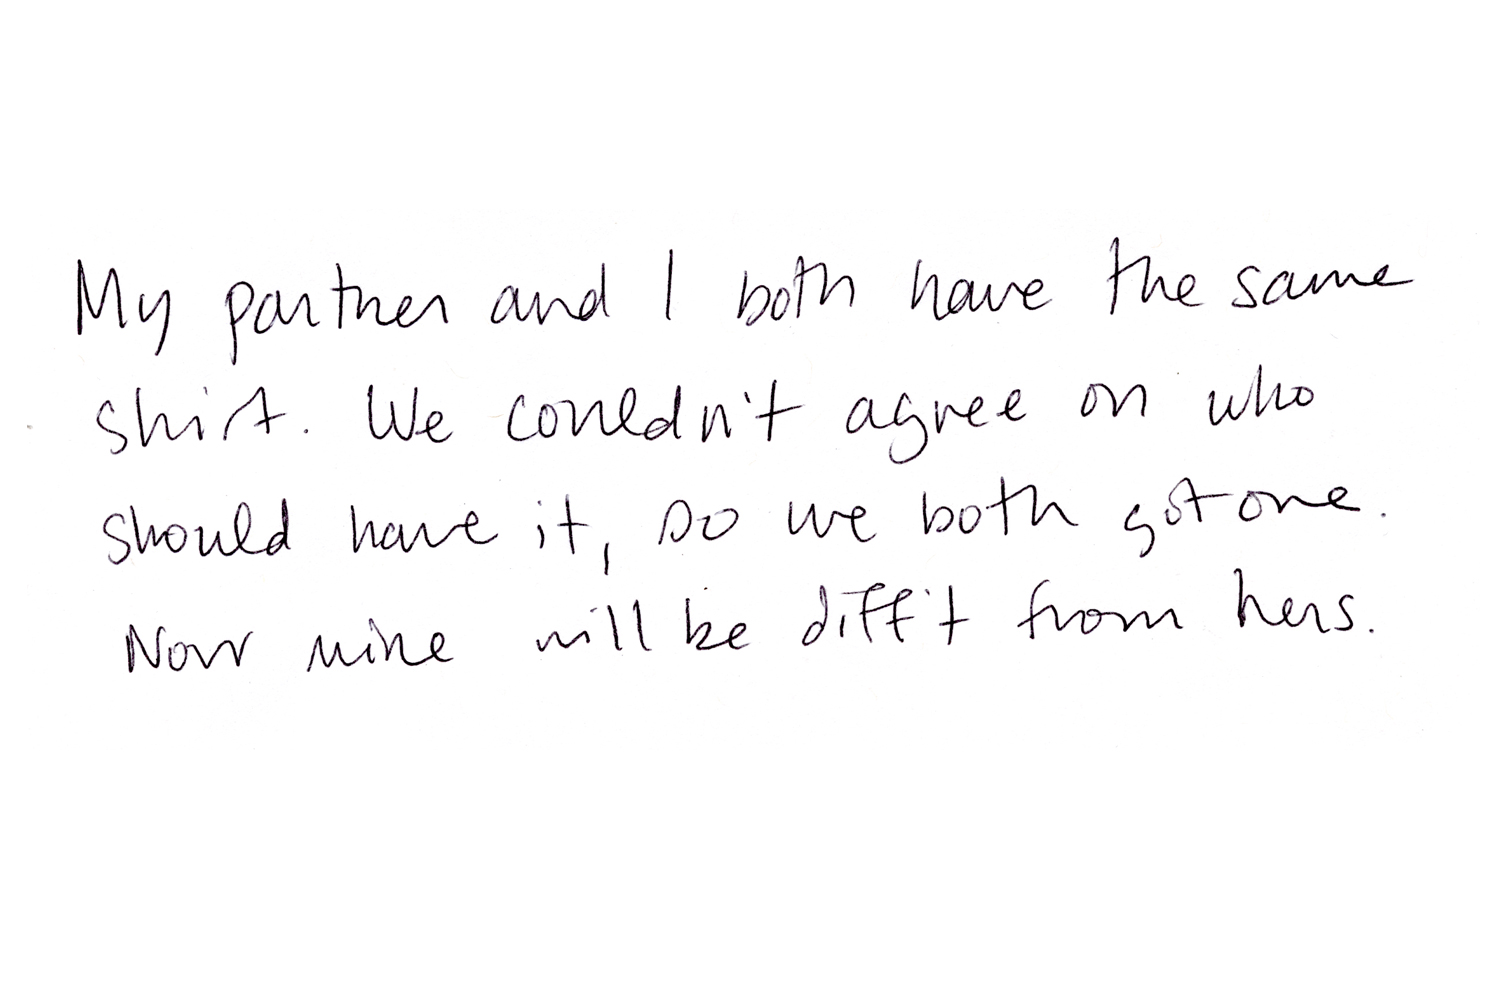 My partner and I both have the same
shirt. We couldn't agree on who
should have it, so we both got one.
Now mine will be diff't from hers.